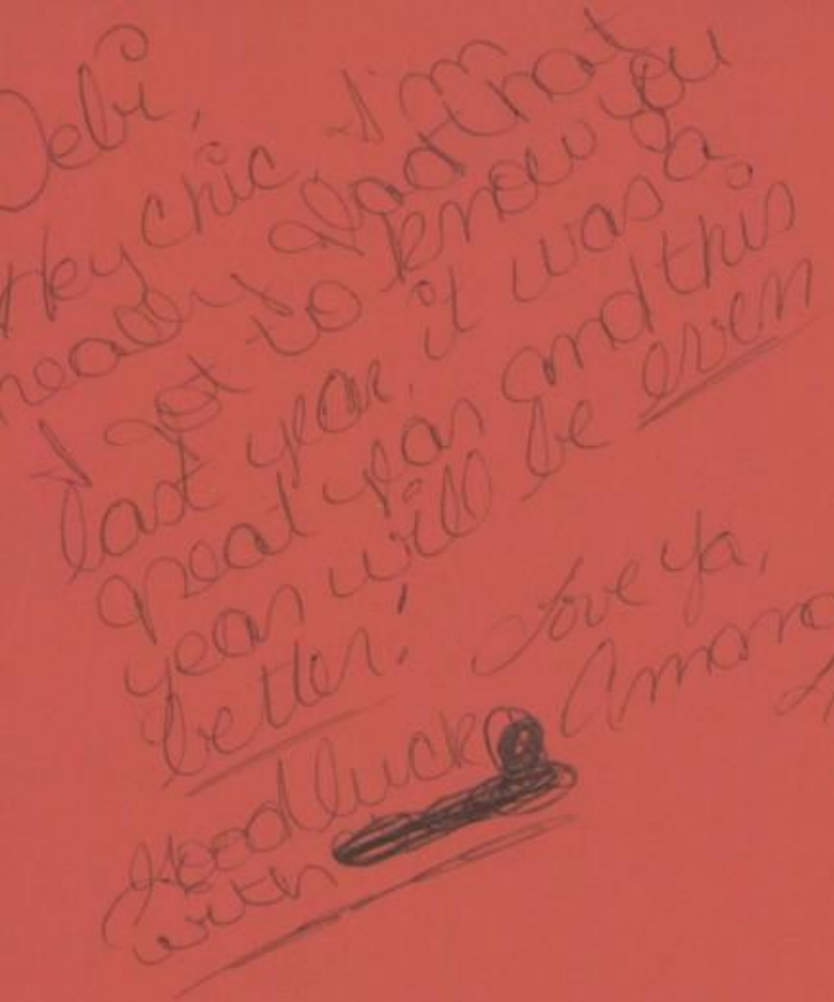 Debi,
Hey chic, I'm
really glad that
I got to know you
last year, it was a
great year and this
year will be even
better!
Love ya,
Good luck
with